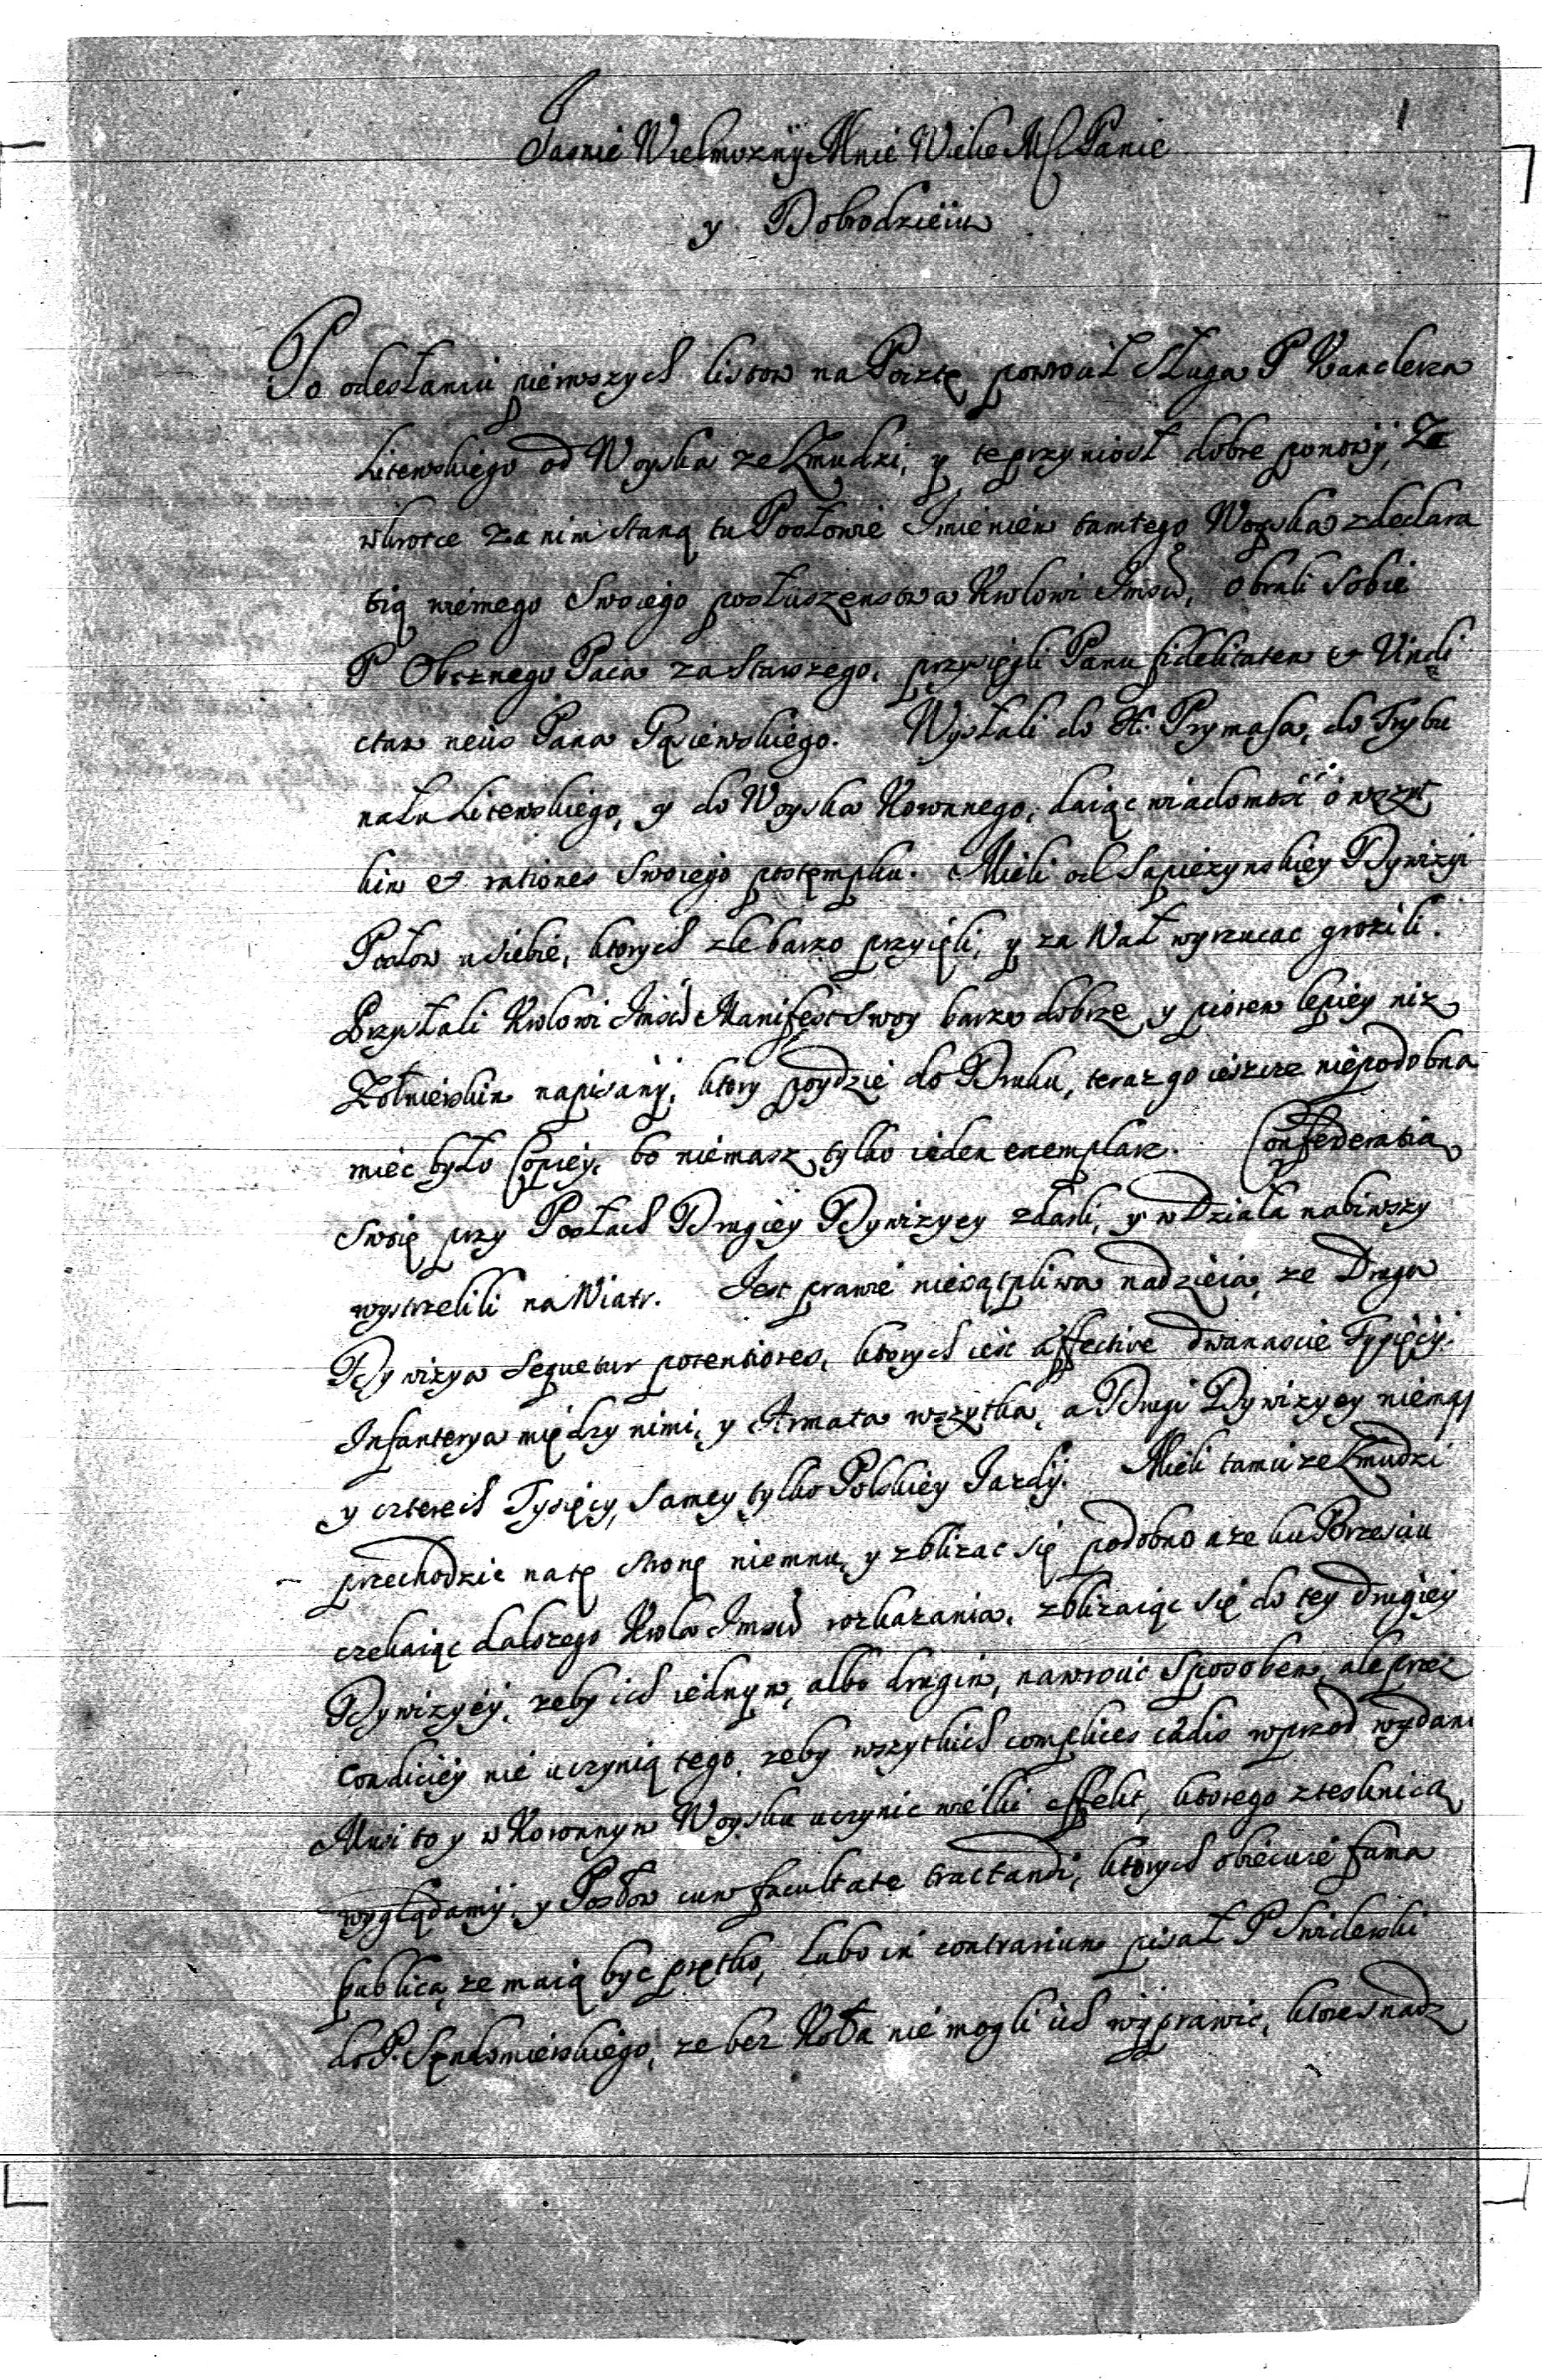 1
Jasnie Wielmozny Mnie Wielce Mſ Panie
y Dobrodzieiu
Po odesłaniu pierwszych listow na Pocztę powrocił Sługa P Kanclerza
Litewskiego od Woyska ze Zmudzi, y te przyniosł dobre nowiny, Ze
wkrotce za nim staną tu Posłowie Imieniem tamtego Woyska z declara
tią wiernego Swoiego posłuszenstwa Krolowi Imści, obrali Sobie
P Oboznego Paca za Starszego, przysięgli Panu fidelitatem et Vindi
ctam necis Pana Gąsiewskiego. Wysłali do X. Prymasa, do Trybu
nału Litewskiego, y do Woyska Koronnego, daiąc wiadomość o wszyt
kim et rationes Swoiego postempku. Mieli od Sapiezynskiey Dywizyi
Posłow u siebie, ktorych zle barzo przyięli, y za Wał wyrzucac grozili.
Przysłali Krolowi Imści Manifest Swoy barzo dobrze y piorem lepiey niz
Zołnierskim napisany, ktory poydzie do Druku, teraz go ieszcze niepodobna
miec było Copiey, bo niemasz tylko ieden exemplarz. Confederatią
Swoię przy Posłach Drugiey Dywizyey zdarli, y w Działa nabiwszy
wystrzelili na Wiatr. Jest prawie niewątpliwa nadzieia, ze Druga
Dywizya Sequetur potentiores, ktorych iest effective dwanascie Tysięcy.
Infanterya między nimi, y Armata wszytka, a Drugi Dywizyey niemasz
y czterech Tysięcy, Samey tylko Polskiey Jazdy. Mieli tamci ze Zmudzi
przechodzic na tę stronę niemnu, y zblizac się podobno aze ku Brzesciu
czekaiąc dalszego Krola Imści rozkazania, zblizaiąc się do tey drugiey
Dywizyey, zeby ich iednym, albo drugim, nawrocic Sposobem, ale przez
condiciey nie uczynią tego, zeby wszytkich complices cædis wprzod wydano
Musi to y w Koronnym Woysku uczynic wielki effekt, ktorego z tesknicą
wyglądamy, y Posłow cum facultate tractandi, ktorych obiecuie fama
publica, ze maią byc prętko, Lubo in contrarium pisał P Swiderski
do P. Sendomierskiego, ze bez Koła nie mogli ich wyprawic, ktore snadz